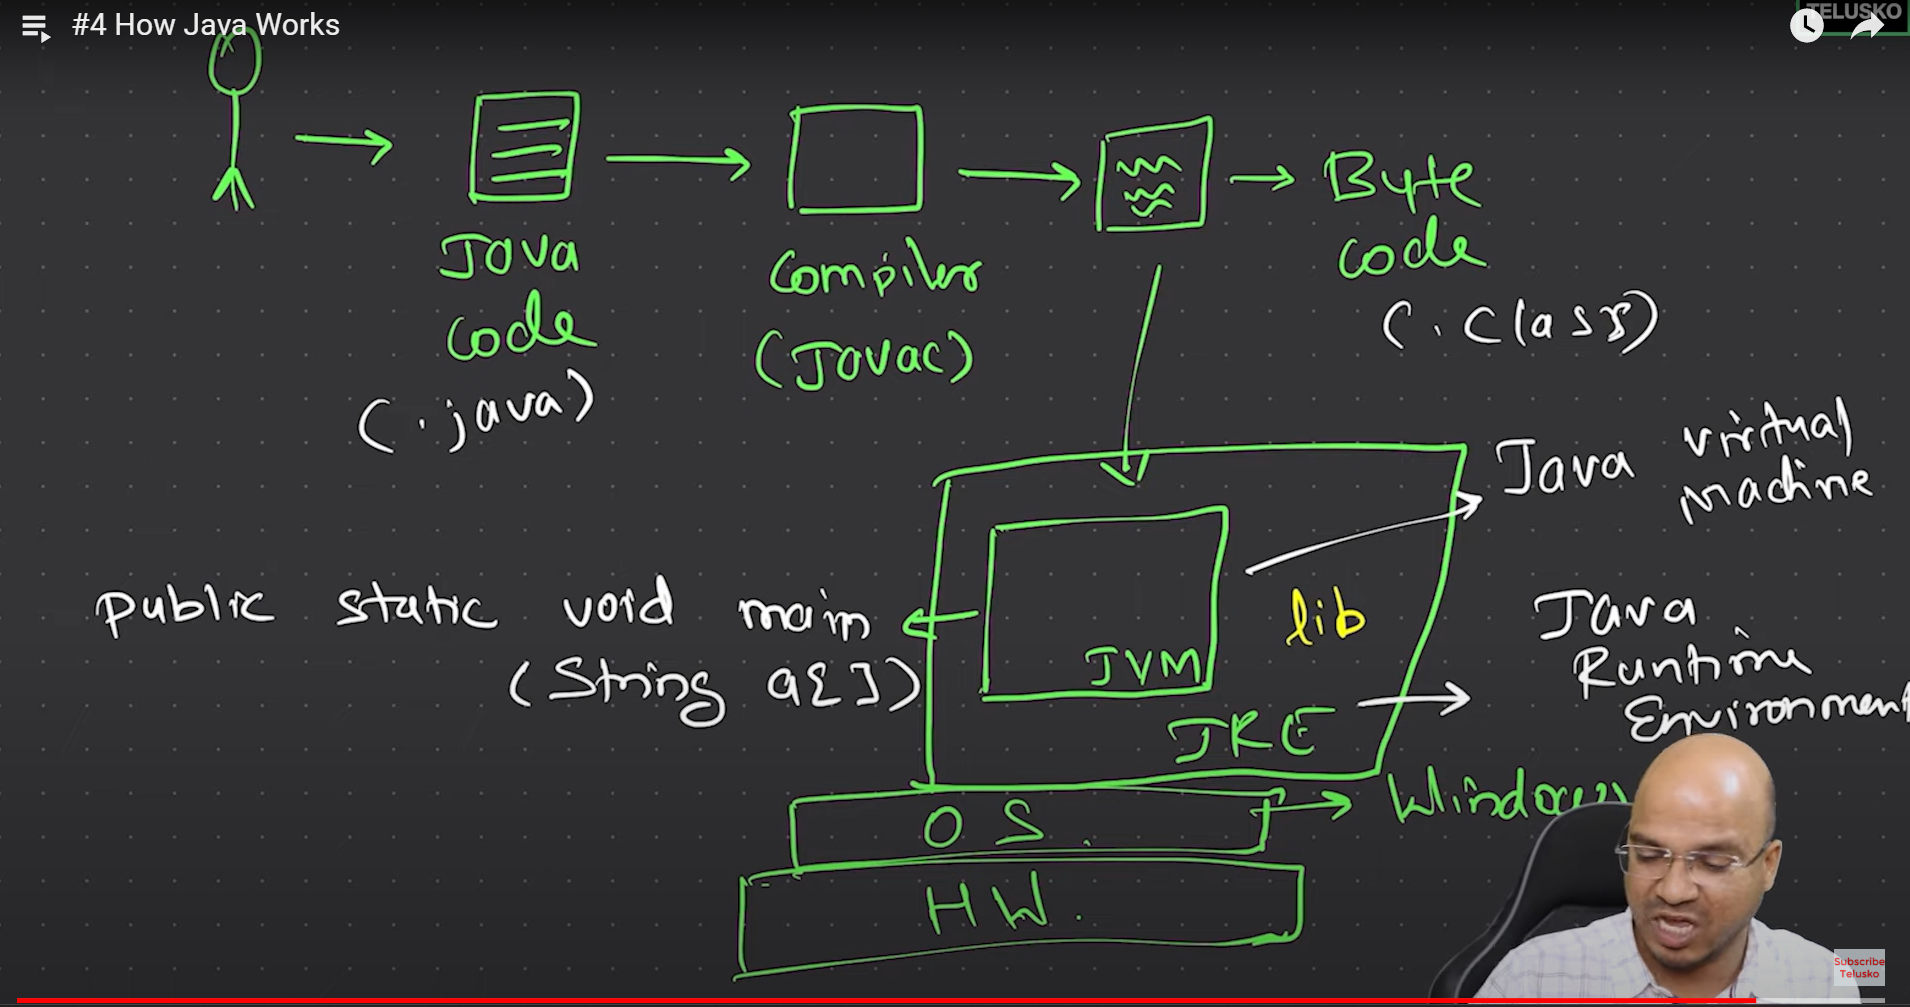 #4 How Java Works
TELUSKO
Java
code
(.java)
Compiler
(Javac)
Byte
code
(.class)
Java virtual
machine
public static void main
(String a[])
JVM
lib
JRE
Java
Runtime
Environment
OS.
Windows
HW.
Subscribe
Telusko